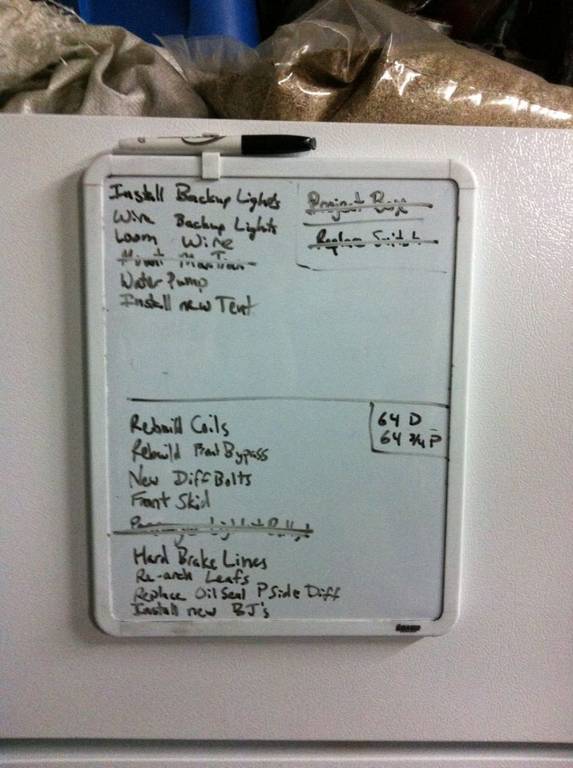 Install Backup Lights
Wire Backup Lights
Loom Wire
Water Pump
Install new Tent
Project Box
Replace Switch
64 D
64 3/4 P
Rebuild Coils
Rebuild Front Bypass
New Diff Bolts
Front Skid
Hard Brake Lines
Re-arch Leafs
Replace Oil Seal P Side Diff
Install new BJ's